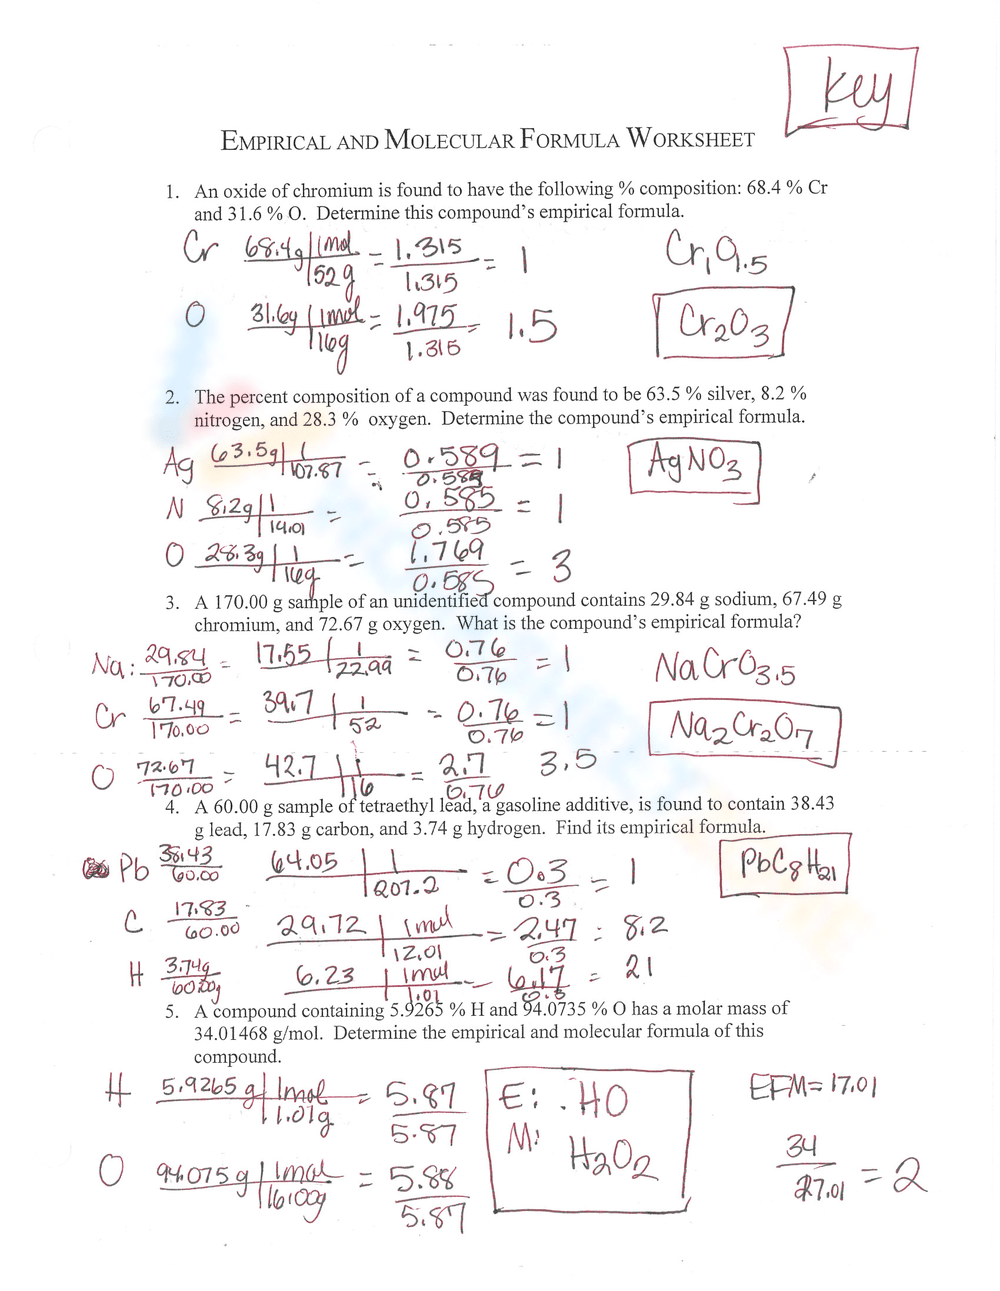 Key
EMPIRICAL AND MOLECULAR FORMULA WORKSHEET
1. An oxide of chromium is found to have the following % composition: 68.4 % Cr
and 31.6 % O. Determine this compound's empirical formula.
Cr 68.4g | 1mol = 1.315 = 1 Cr₁O₁.₅
52g 1.315
O 31.6g | 1mol = 1.975 = 1.5 Cr₂O₃
16g 1.315
2. The percent composition of a compound was found to be 63.5 % silver, 8.2 %
nitrogen, and 28.3 % oxygen. Determine the compound's empirical formula.
Ag 63.5g | 1 = 0.589 = 1 AgNO₃
107.87 0.589
N 8.2g | 1 = 0.585 = 1
14.01 0.585
O 28.3g | 1 = 1.769 = 3
16g 0.585
3. A 170.00 g sample of an unidentified compound contains 29.84 g sodium, 67.49 g
chromium, and 72.67 g oxygen. What is the compound's empirical formula?
Na: 29.84 = 17.55 | 1 = 0.76 = 1 NaCrO₃.₅
170.00 22.99 0.76
Cr 67.49 = 39.7 | 1 = 0.76 = 1 Na₂Cr₂O₇
170.00 52 0.76
O 72.67 = 42.7 | 1 = 2.7 3.5
170.00 16 0.76
4. A 60.00 g sample of tetraethyl lead, a gasoline additive, is found to contain 38.43
g lead, 17.83 g carbon, and 3.74 g hydrogen. Find its empirical formula.
Pb 38.43 64.05 | 1 = 0.3 = 1 PbC₈H₂₁
60.00 207.2 0.3
C 17.83 29.72 | 1mol = 2.47 = 8.2
60.00 12.01 0.3
H 3.74g 6.23 | 1mol = 6.17 = 21
60.00g 1.01 0.3
5. A compound containing 5.9265 % H and 94.0735 % O has a molar mass of
34.01468 g/mol. Determine the empirical and molecular formula of this
compound.
H 5.9265 g | 1mol = 5.87 E: HO EFM=17.01
1.01g 5.87 M: H₂O₂
O 94.075 g | 1mol = 5.88 34 = 2
16.00g 5.87 17.01